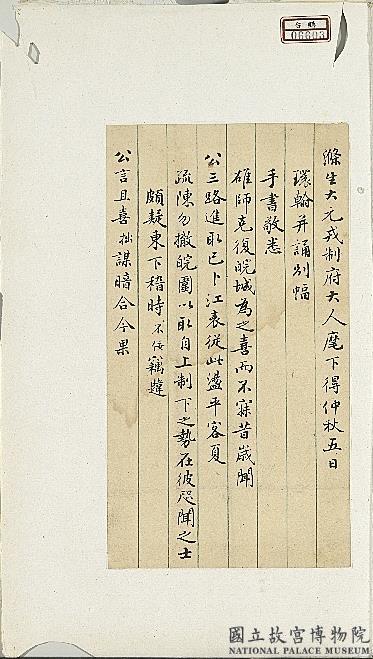 滌生大元戎制府大人麾下得仲秋五日
環翰并誦別幅
手書敬悉
雄師克復皖城為之喜而不寐昔歲聞
公三路進取已卜江表從此盪平客夏
疏陳勿撤皖圍以取自上制下之勢在彼咫聞之士
頗疑東下稽時不佞竊韙
公言且喜拙謀暗合今果
06603
國立故宮博物院
NATIONAL PALACE MUSEUM